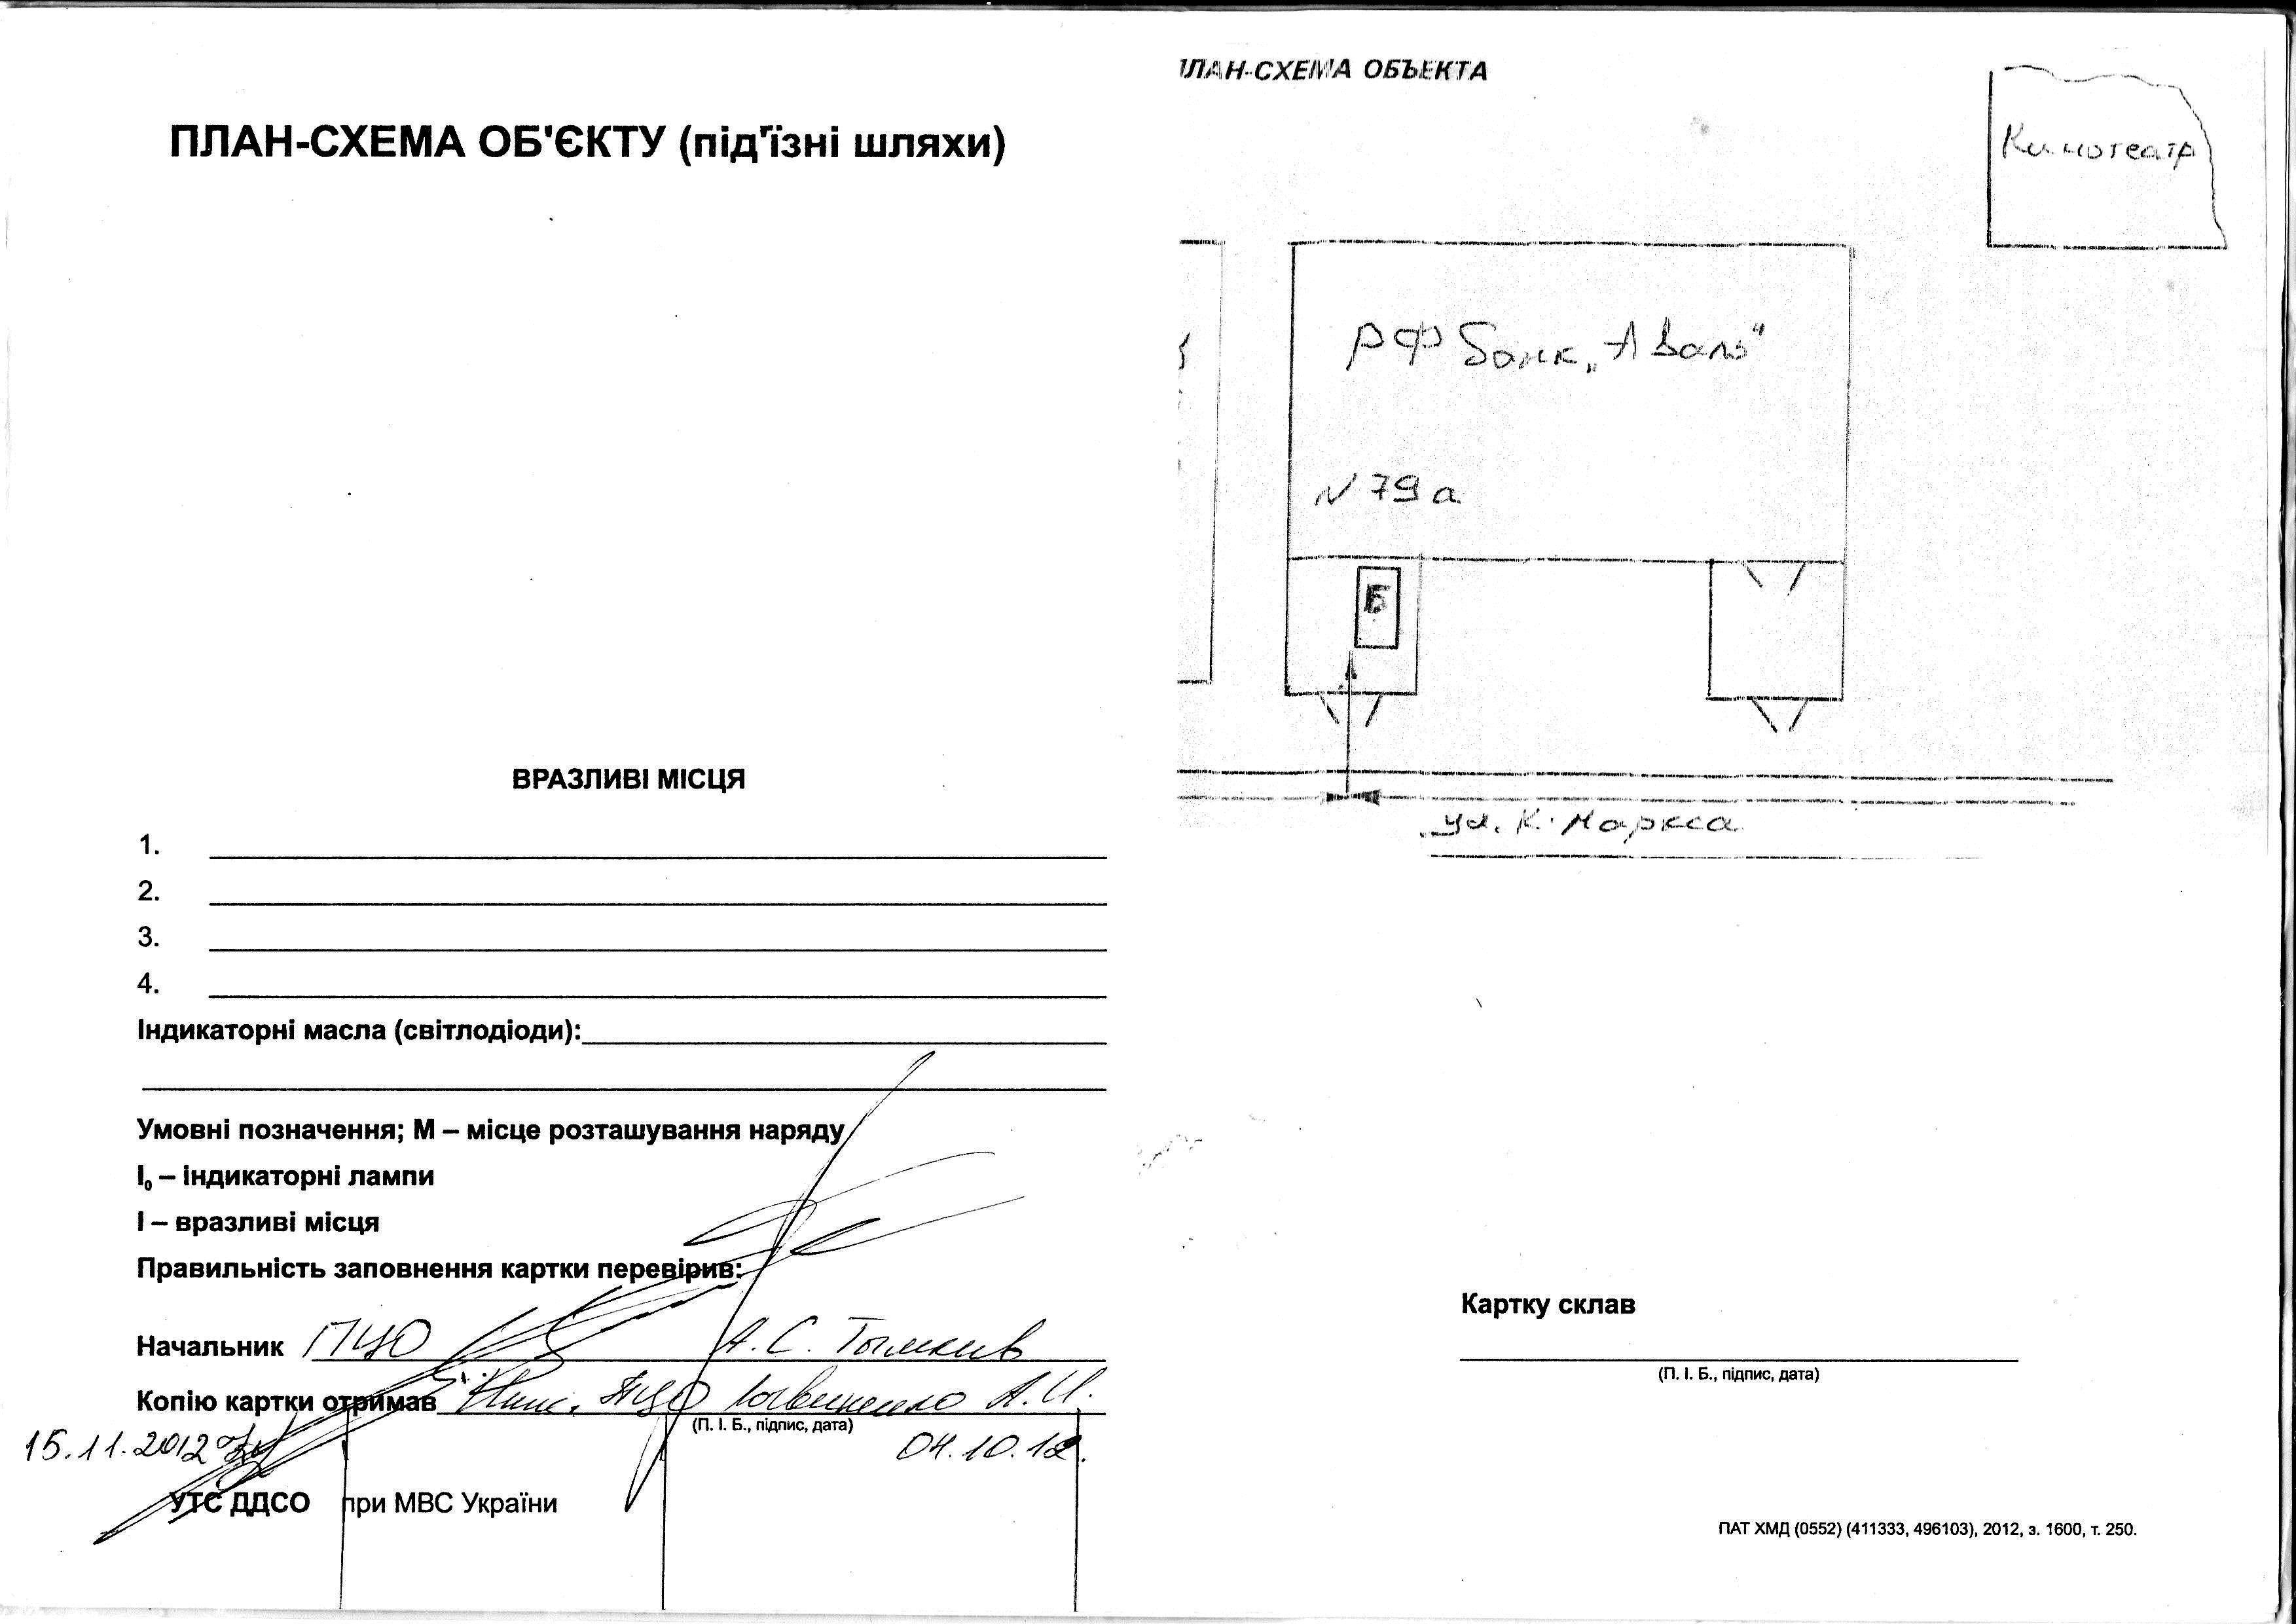 ПЛАН-СХЕМА ОБ'ЄКТУ (під'їзні шляхи)
ВРАЗЛИВІ МІСЦЯ
1.
2.
3.
4.
Індикаторні масла (світлодіоди):
Умовні позначення; М – місце розташування наряду
І₀ – індикаторні лампи
І – вразливі місця
Правильність заповнення картки перевірив:
Начальник ПЦО А. С. Тымкив
Копію картки отримав ПЦО А.И.
(П. І. Б., підпис, дата)
15.11.2012 04.10.12.
УТС ДДСО при МВС України
ПЛАН-СХЕМА ОБЪЕКТА
Кинотеатр
РФ Банк „Аваль"
N 79а
Б
ул. К. Маркса
Картку склав
(П. І. Б., підпис, дата)
ПАТ ХМД (0552) (411333, 496103), 2012, з. 1600, т. 250.